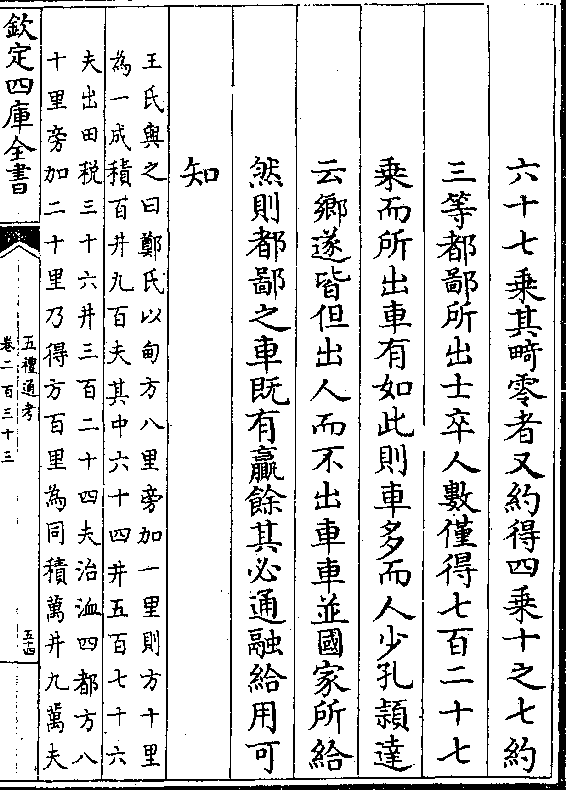 六十七乘其畸零者又約得四乘十之七約
三等都鄙所出士卒人數僅得七百二十七
乘而所出車有如此則車多而人少孔穎達
云鄉遂皆但出人而不出車車並國家所給
然則都鄙之車既有贏餘其必通融給用可
知
王氏與之曰鄭氏以甸方八里旁加一里則方十里
為一成積百井九百夫其中六十四井五百七十六
夫出田稅三十六井三百二十四夫治洫四都方八
十里旁加二十里乃得方百里為同積萬井九萬夫
欽定四庫全書
五禮通考
卷二百三十三
五十四